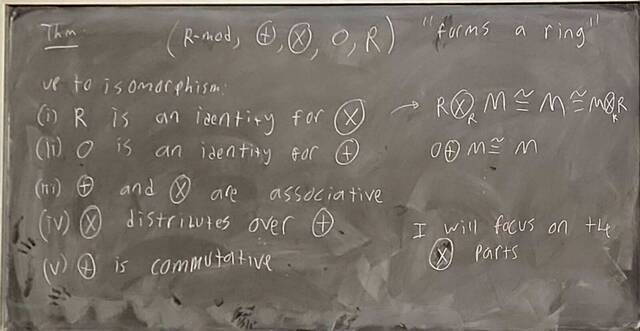 Thm: (R-mod, ⊕, ⊗, 0, R) "forms a ring"
up to isomorphism:
(i) R is an identity for ⊗ → R⊗_R M ≅ M ≅ M⊗_R R
(ii) 0 is an identity for ⊕ 0⊕M ≅ M
(iii) ⊕ and ⊗ are associative
(iv) ⊗ distributes over ⊕
(v) ⊕ is commutative
I will focus on the
⊗ parts